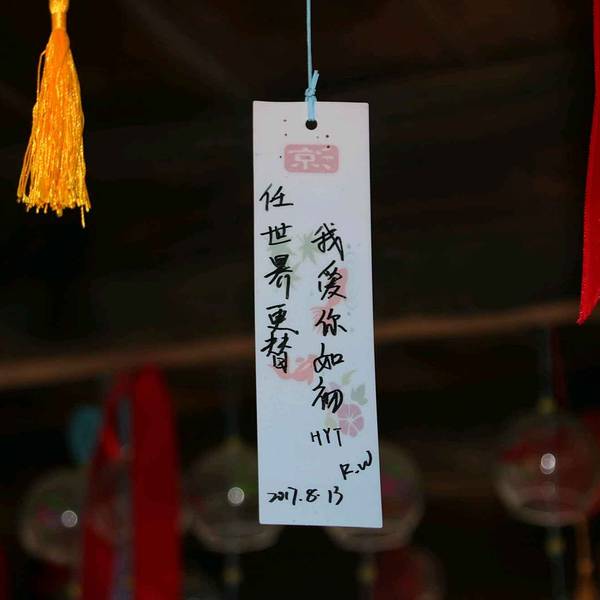 京
任世界更替
我爱你如初
HYT
R.W
2017.8.13